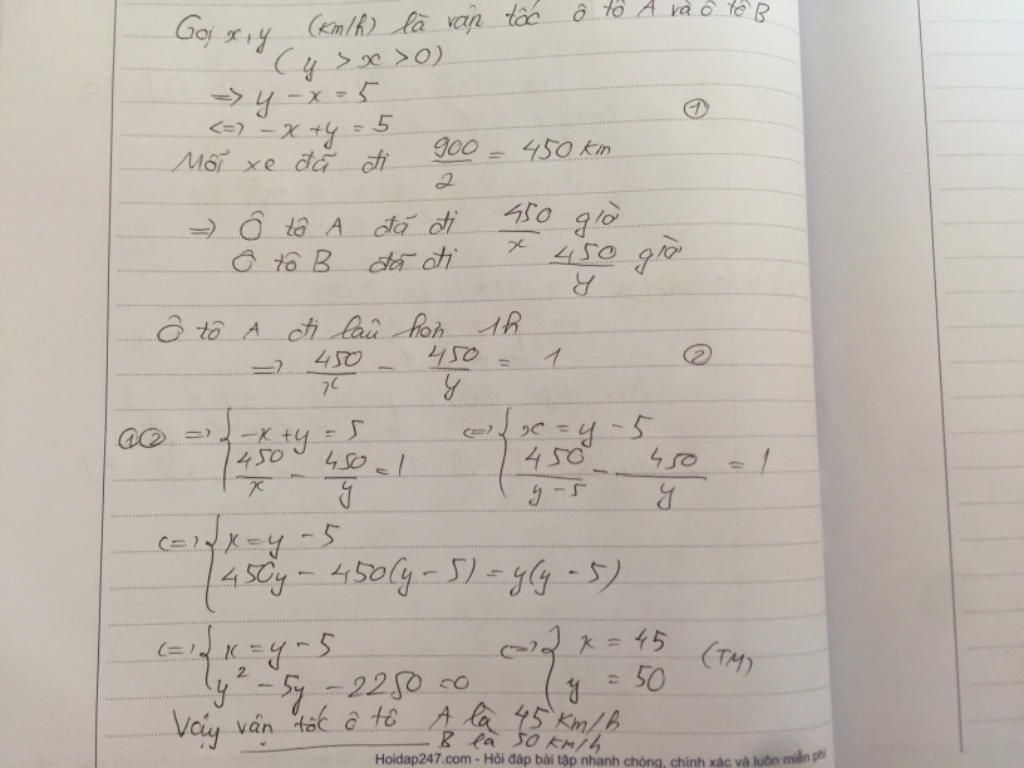 Gọi x, y (km/h) là vận tốc ô tô A và ô tô B
( y > x > 0)
=> y - x = 5
<=> -x + y = 5 ①
Mỗi xe đã đi 900/2 = 450 km
=> Ô tô A đã đi 450/x giờ
Ô tô B đã đi 450/y giờ
Ô tô A đi lâu hơn 1h
=> 450/x - 450/y = 1 ②
①② => { -x + y = 5 <=> { x = y - 5
450/x - 450/y = 1 450/(y-5) - 450/y = 1
<=> { x = y - 5
450y - 450(y - 5) = y(y - 5)
<=> { x = y - 5 <=> { x = 45 (TM)
y² - 5y - 2250 = 0 y = 50
Vậy vận tốc ô tô A là 45 km/h
B là 50 km/h
Hoidap247.com - Hỏi đáp bài tập nhanh chóng, chính xác và luôn miễn phí